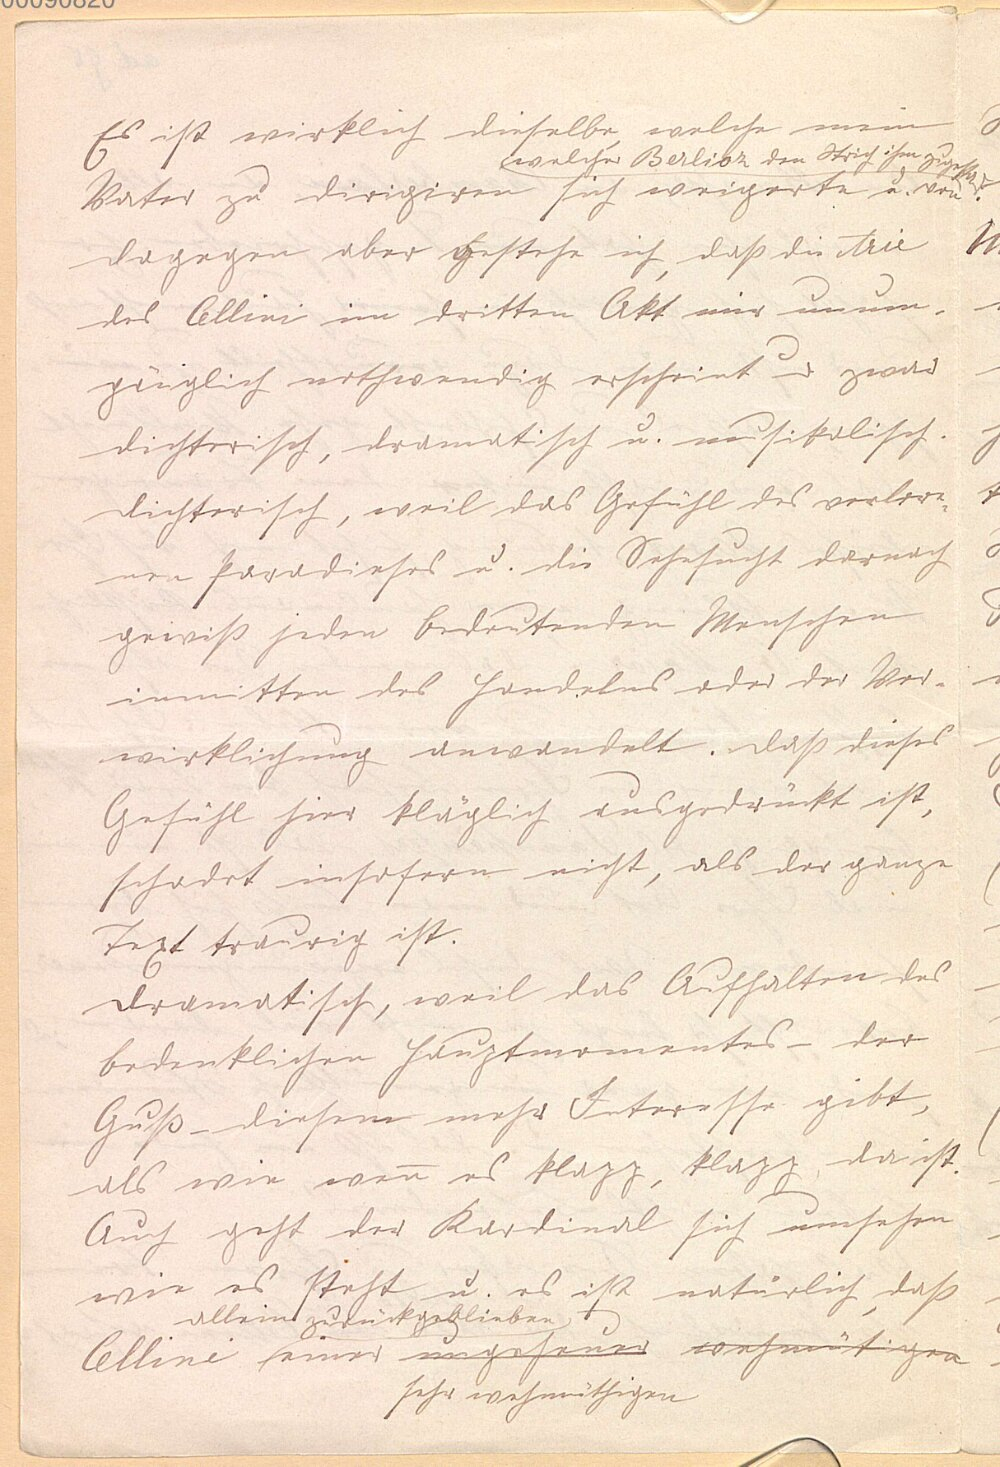 00090820
Es ist wirklich dieselbe, welche mein
welcher Berlioz den Strich ihm
Vater zu dirigiren sich weigerte u. von
dagegen aber gestehe ich, daß die Arie
des Cellini im dritten Akt mir unum-
gänglich nothwendig erscheint u zwar
dichterisch, dramatisch u. musikalisch.
Dichterisch, weil das Gefühl des verlore-
nen Paradieses u. die Sehnsucht darnach
gewiß jeden bedeutenden Menschen
inmitten des Handelns oder der Ver-
wirklichung anwandelt. Daß dieses
Gefühl hier kläglich ausgedrückt ist,
schadet insofern nicht, als der ganze
Text traurig ist.
Dramatisch, weil das Aufhalten des
bedenklichen Hauptmomentes – der
Guß – diesem mehr Interesse gibt,
als wie wen̄ es klapp, klapp, da ist.
Auch geht der Kardinal sich umsehen
wie es steht u. es ist natürlich, daß
allein zurückgeblieben
Cellini einer ungeheuer wehmütigen
sehr wehmüthigen